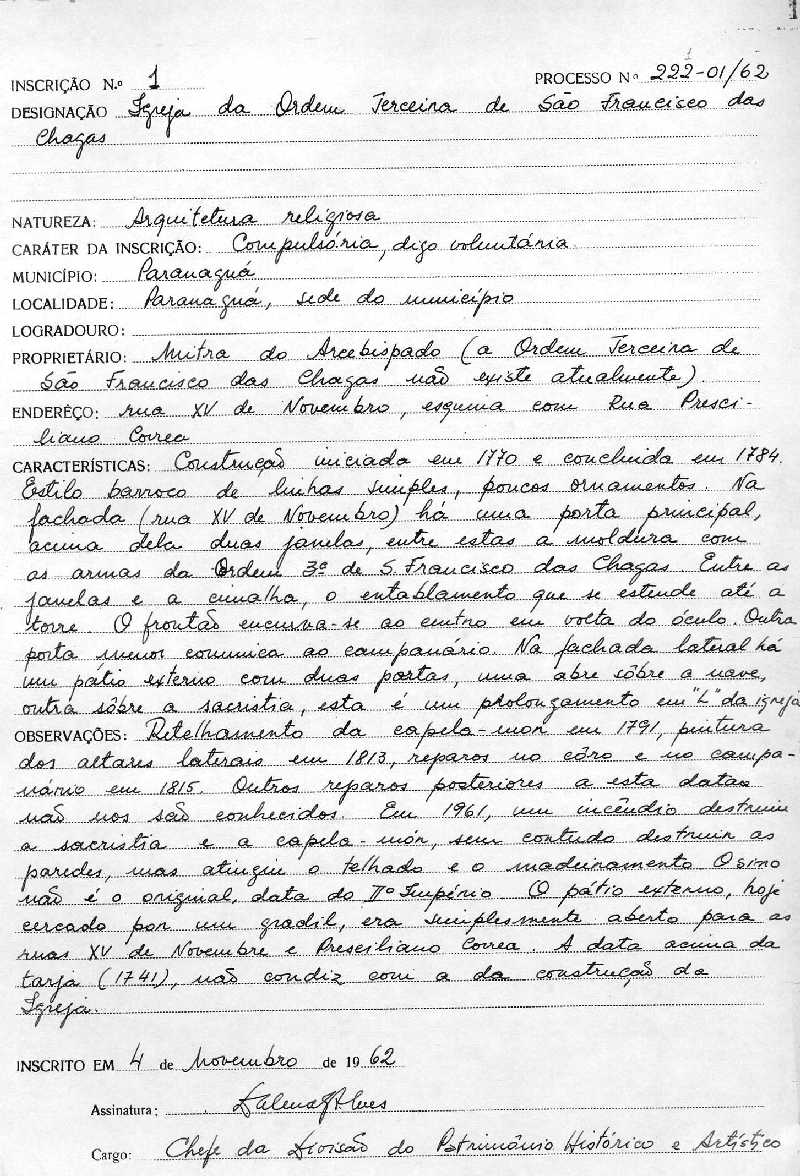 INSCRIÇÃO N.º 1 PROCESSO Nº 222-01/62
DESIGNAÇÃO Igreja da Ordem Terceira de São Francisco das
Chagas
NATUREZA: Arquitetura religiosa
CARÁTER DA INSCRIÇÃO: Compulsória, digo voluntária
MUNICÍPIO: Paranaguá
LOCALIDADE: Paranaguá, sede do município
LOGRADOURO:
PROPRIETÁRIO: Mitra do Arcebispado (a Ordem Terceira de
São Francisco das Chagas não existe atualmente).
ENDERÊÇO: rua XV de Novembro, esquina com Rua Presci-
liano Correa
CARACTERÍSTICAS: Construção iniciada em 1770 e concluida em 1784.
Estilo barroco de linhas simples, poucos ornamentos. Na
fachada (rua XV de Novembro) há uma porta principal,
acima dela duas janelas, entre estas a moldura com
as armas da Ordem 3ª de S. Francisco das Chagas. Entre as
janelas e a cimalha, o entablamento que se estende até a
torre. O frontão encurva-se ao centro em volta do óculo. Outra
porta menor comunica ao campanário. Na fachada lateral há
um pátio externo com duas portas, uma abre sôbre a nave,
outra sôbre a sacristia, esta é um prolongamento em "L" da igreja
OBSERVAÇÕES: Retelhamento da capela-mor em 1791, pintura
dos altares laterais em 1813, reparos no côro e no campa-
nário em 1815. Outros reparos posteriores a esta data
não nos são conhecidos. Em 1961, um incêndio destruiu
a sacristia e a capela-mór, sem contudo destruir as
paredes, mas atingiu o telhado e o madeiramento. O sino
não é o original, data do IIº Império. O pátio externo, hoje
cercado por um gradil, era simplesmente aberto para as
ruas XV de Novembro e Presciliano Correa. A data acima da
tarja (1741), não condiz com a da construção da
Igreja.
INSCRITO EM 4 de Novembro de 1962
Assinatura:
Cargo: Chefe da Divisão do Patrimônio Histórico e Artístico